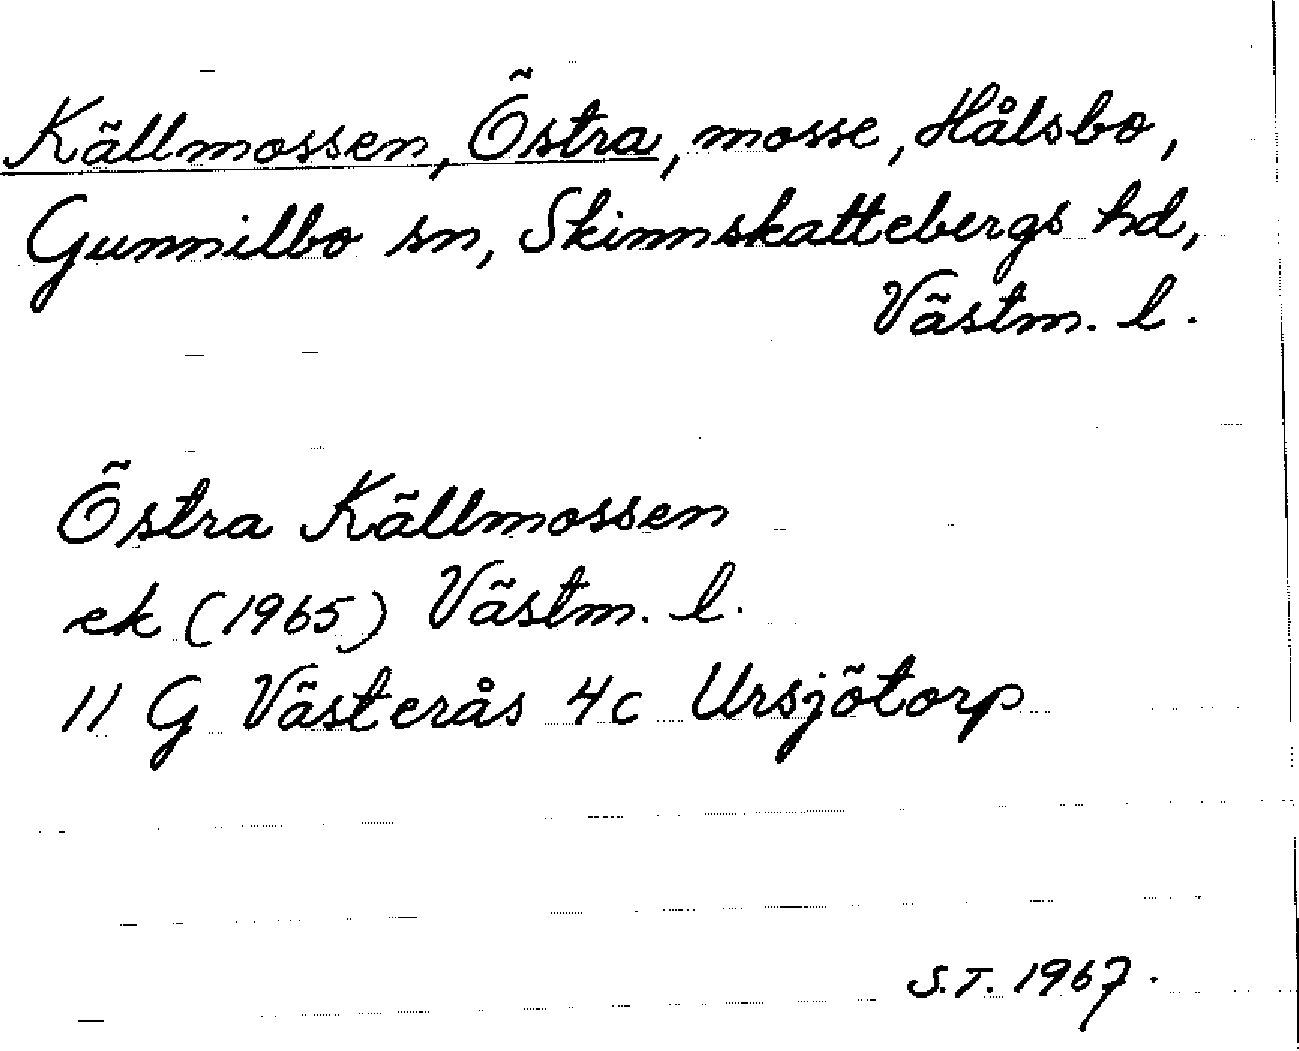 Källmossen, Östra, mosse, Hålsbo,
Gunnilbo sn, Skinnskattebergs hd,
Västm. l.
Östra Källmossen
ek (1965) Västm. l.
11 G Västerås 4c Ursjötorp
S.T. 1967.